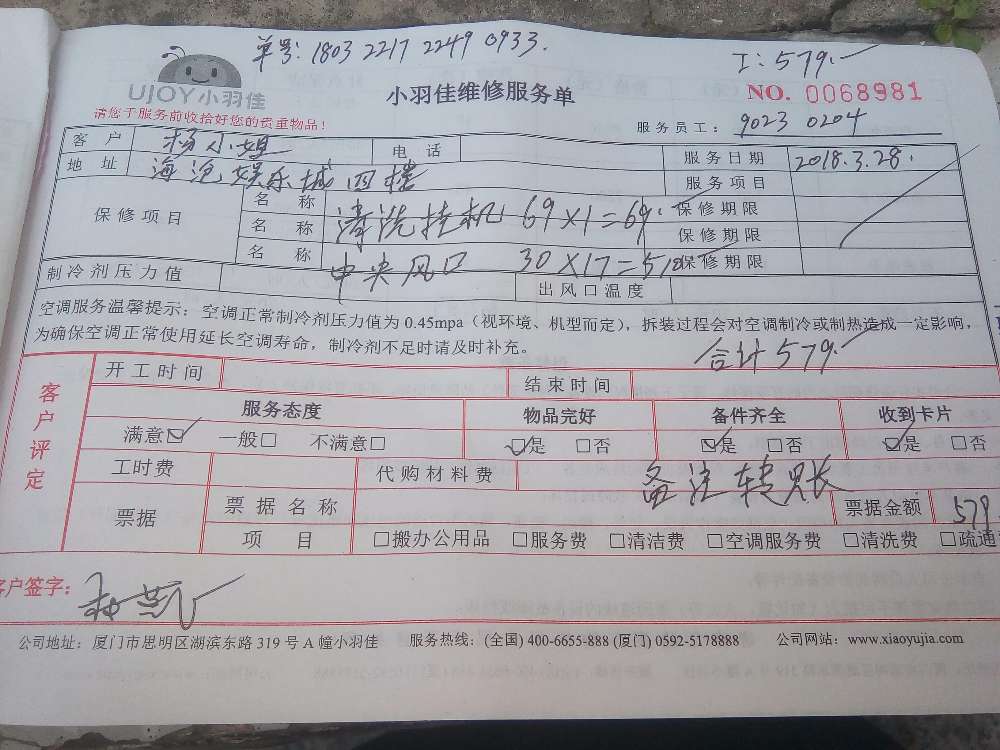 单号: 1803 2217 2249 0933.
I: 579.
UJOY小羽佳
小羽佳维修服务单
NO. 0068981
请您于服务前收拾好您的贵重物品!
服务员工: 9023 0204
客户 杨小姐 电话 服务日期 2018.3.28.
地址 海沧娱乐城四楼 服务项目
保修项目 名称 清洗挂机 69×1=69. 保修期限
名称 保修期限
名称 中央风口 30×17=510 保修期限
制冷剂压力值 出风口温度
空调服务温馨提示: 空调正常制冷剂压力值为0.45mpa(视环境、机型而定),拆装过程会对空调制冷或制热造成一定影响,
为确保空调正常使用延长空调寿命,制冷剂不足时请及时补充。
合计579.
客户评定
开工时间 结束时间
服务态度 物品完好 备件齐全 收到卡片
满意☑ 一般□ 不满意□ ☑是 □否 ☑是 □否 ☑是 □否
工时费 代购材料费 备注转账
票据 票据名称 票据金额 579
项目 □搬办公用品 □服务费 □清洁费 □空调服务费 □清洗费 □疏通
客户签字:
公司地址: 厦门市思明区湖滨东路319号A幢小羽佳 服务热线: (全国) 400-6655-888 (厦门) 0592-5178888 公司网站: www.xiaoyujia.com